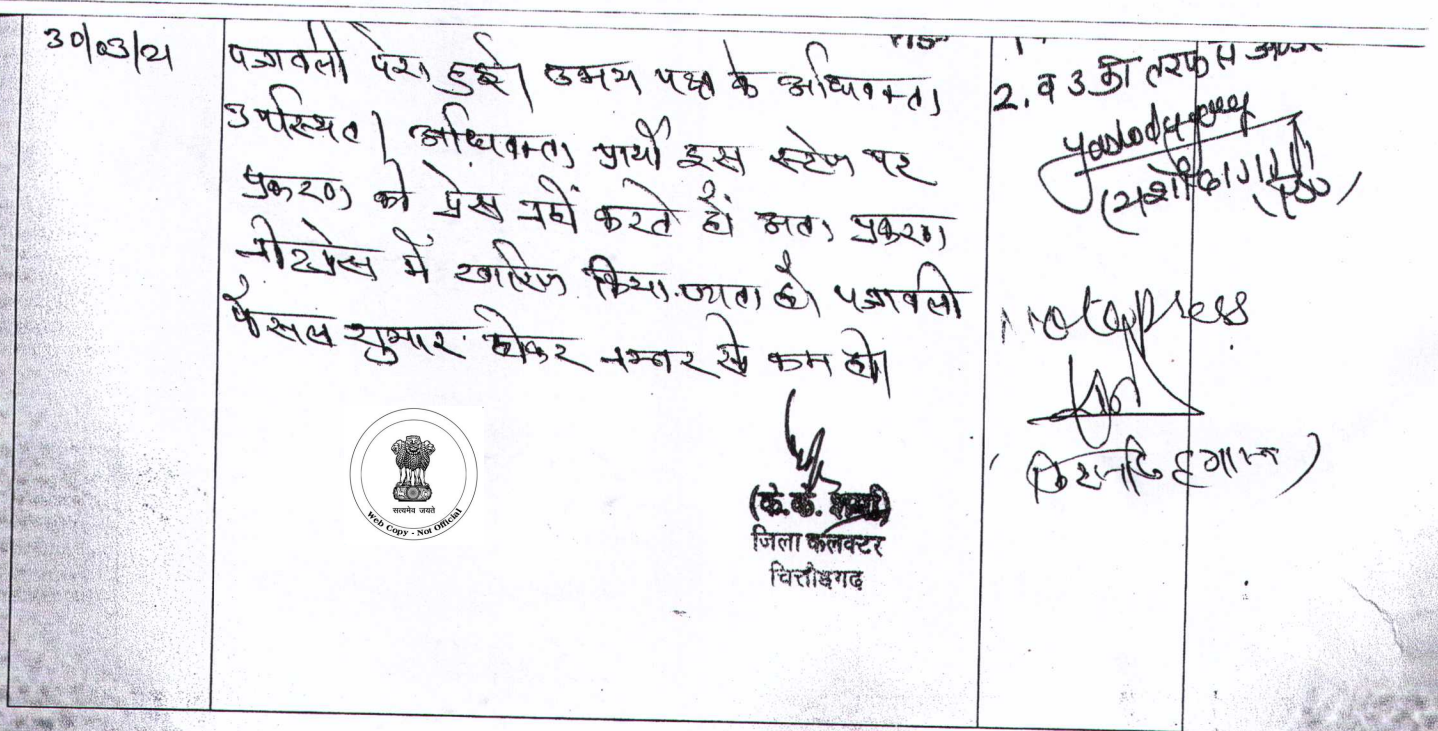 30/03/21
पत्रावली पेश हुई। उभय पक्ष के अधिवक्ता
उपस्थित। अधिवक्ता प्रार्थी इस स्टेज पर
प्रकरण को प्रेस नहीं करते हैं। अतः प्रकरण
नोटप्रेस में खारिज किया जाता है। पत्रावली
फैसल शुमार होकर नम्बर से कम हो।
सत्यमेव जयते
Web Copy - Not Official
(के. के. शर्मा)
जिला कलक्टर
चित्तौड़गढ़
2. व 3 की तरफ से
Not press